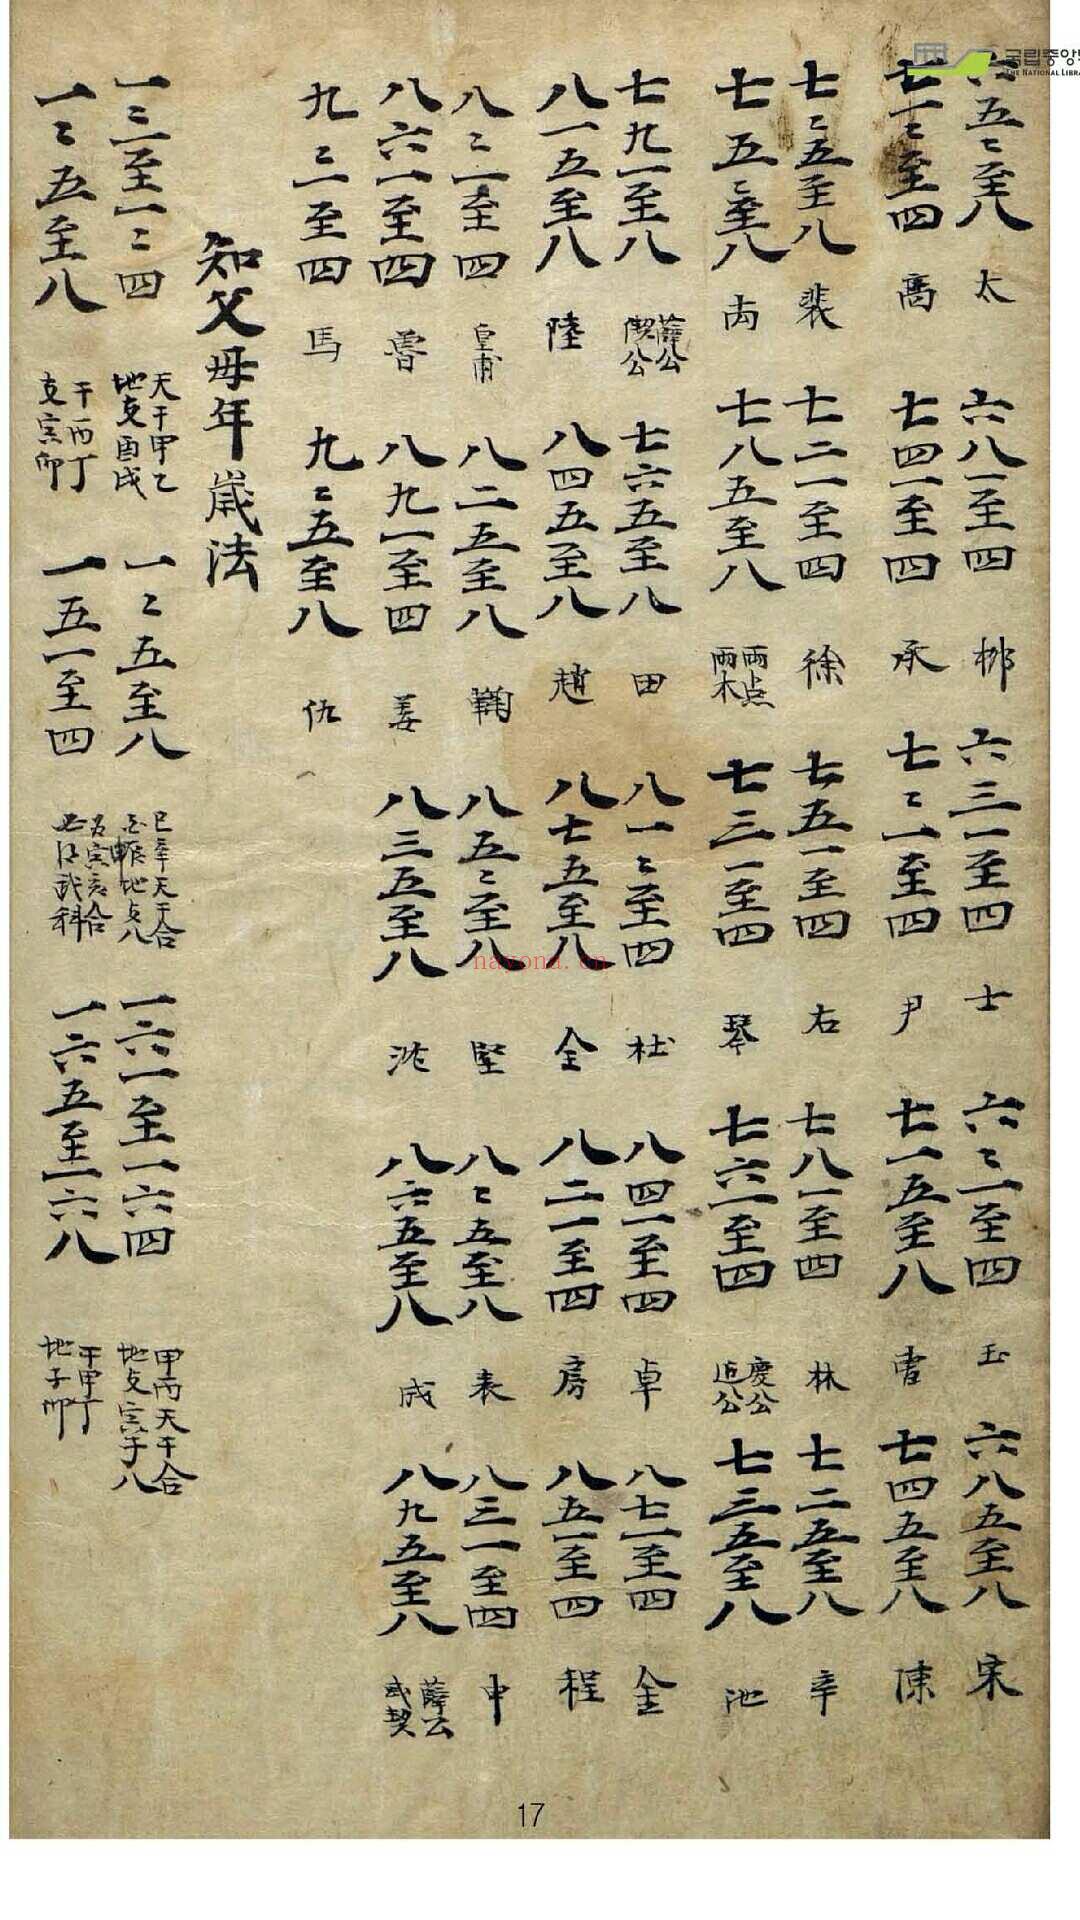 六五二至八 太 六八一至四 六三一至四 士 六二一至四 玉 六八五至八 宋
七一二至四 高 七四一至四 承 七二一至四 尹 七一五至八 七四五至八 陳
七二五至八 裴 七二一至四 徐 七五一至四 右 七八一至四 林 七二五至八 辛
七五二至八 七八五至八 雨点 雨木 七三一至四 琴 七六一至四 慶公 七三五至八 池
七九一至八 薛公 七六五至八 田 八一二至四 杜 八四一至四 卓 八七一至四 金
八一五至八 陸 八四五至八 趙 八七五至八 全 八二一至四 房 八五一至四 程
八二一至四 皇甫 八二五至八 鞠 八五二至八 堅 八二五至八 表 八三一至四 申
八六一至四 魯 八九一至四 姜 八三五至八 八六五至八 成 八九五至八 薛云
九二一至四 馬 九二五至八 仇
知父母年歲法
一三至一二四 天干甲乙 地支酉戌 一二五至八 天干合 一六一至一六四 甲丙天干合 地支寅
一二五至八 干丙丁 支寅卯 一五一至四 武科 一六五至一六八 干甲丁 地子卯
国립중앙
THE NATIONAL LIBRA
nayona.cn
17